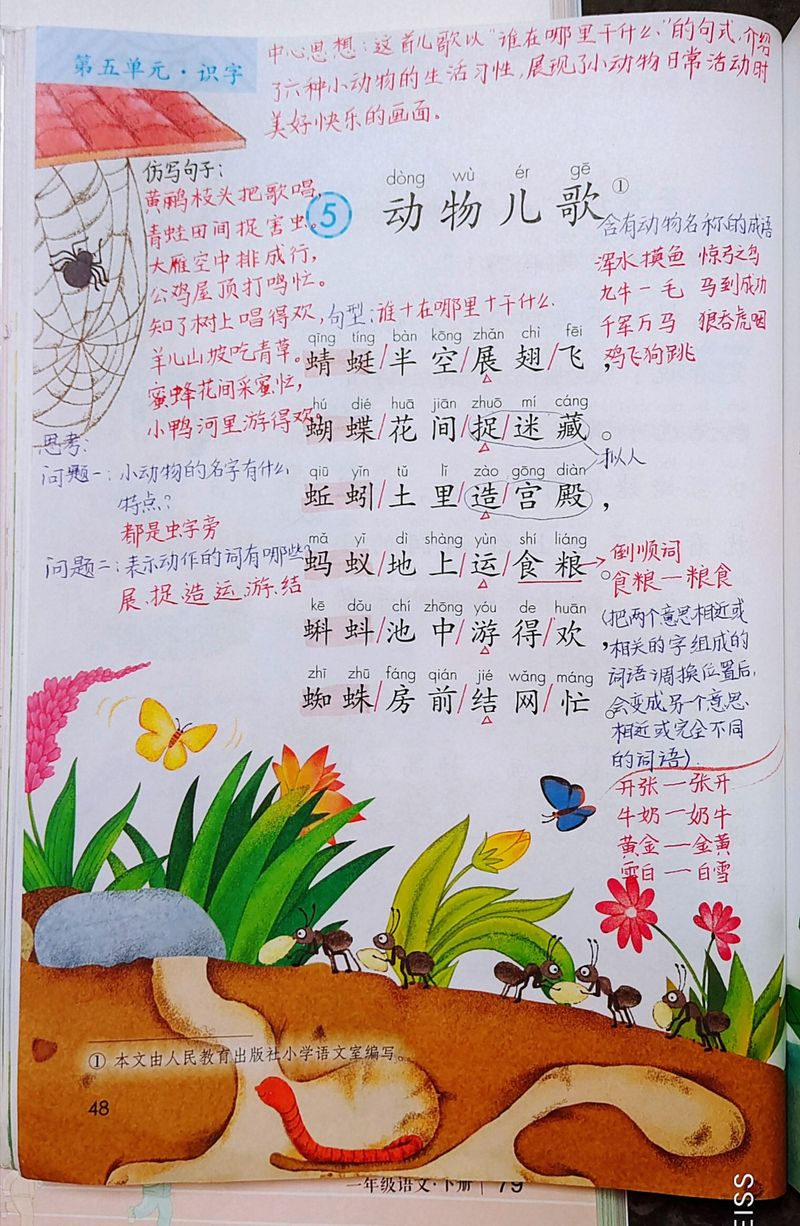 第五单元·识字
中心思想：这首儿歌以“谁在哪里干什么”的句式，介绍
了六种小动物的生活习性，展现了小动物日常活动时
美好快乐的画面。
仿写句子：
黄鹂枝头把歌唱，
青蛙田间捉害虫。
大雁空中排成行，
公鸡屋顶打鸣忙。
知了树上唱得欢，
羊儿山坡吃青草。
蜜蜂花间采蜜忙，
小鸭河里游得欢。
dòng wù ér gē
5 动物儿歌①
含有动物名称的成语
浑水摸鱼 惊弓之鸟
九牛一毛 马到成功
千军万马 狼吞虎咽
鸡飞狗跳
句型：谁+在哪里+干什么
qīng tíng bàn kōng zhǎn chì fēi
蜻蜓/半空/展翅/飞，
hú dié huā jiān zhuō mí cáng
蝴蝶/花间/捉/迷藏。
拟人
qiū yǐn tǔ lǐ zào gōng diàn
蚯蚓/土里/造/宫殿，
mǎ yǐ dì shàng yùn shí liáng
蚂蚁/地上/运/食粮。
kē dǒu chí zhōng yóu de huān
蝌蚪/池中/游得欢，
zhī zhū fáng qián jié wǎng máng
蜘蛛/房前/结网忙。
思考：
问题一：小动物的名字有什么
特点？
都是虫字旁
问题二：表示动作的词有哪些？
展、捉、造、运、游、结
倒顺词
食粮一粮食
（把两个意思相近或
相关的字组成的
词语调换位置后，
会变成另一个意思
相近或完全不同
的词语）.
开张一张开
牛奶一奶牛
黄金一金黄
雪白一白雪
① 本文由人民教育出版社小学语文室编写。
48
一年级语文·下册
79
EISS